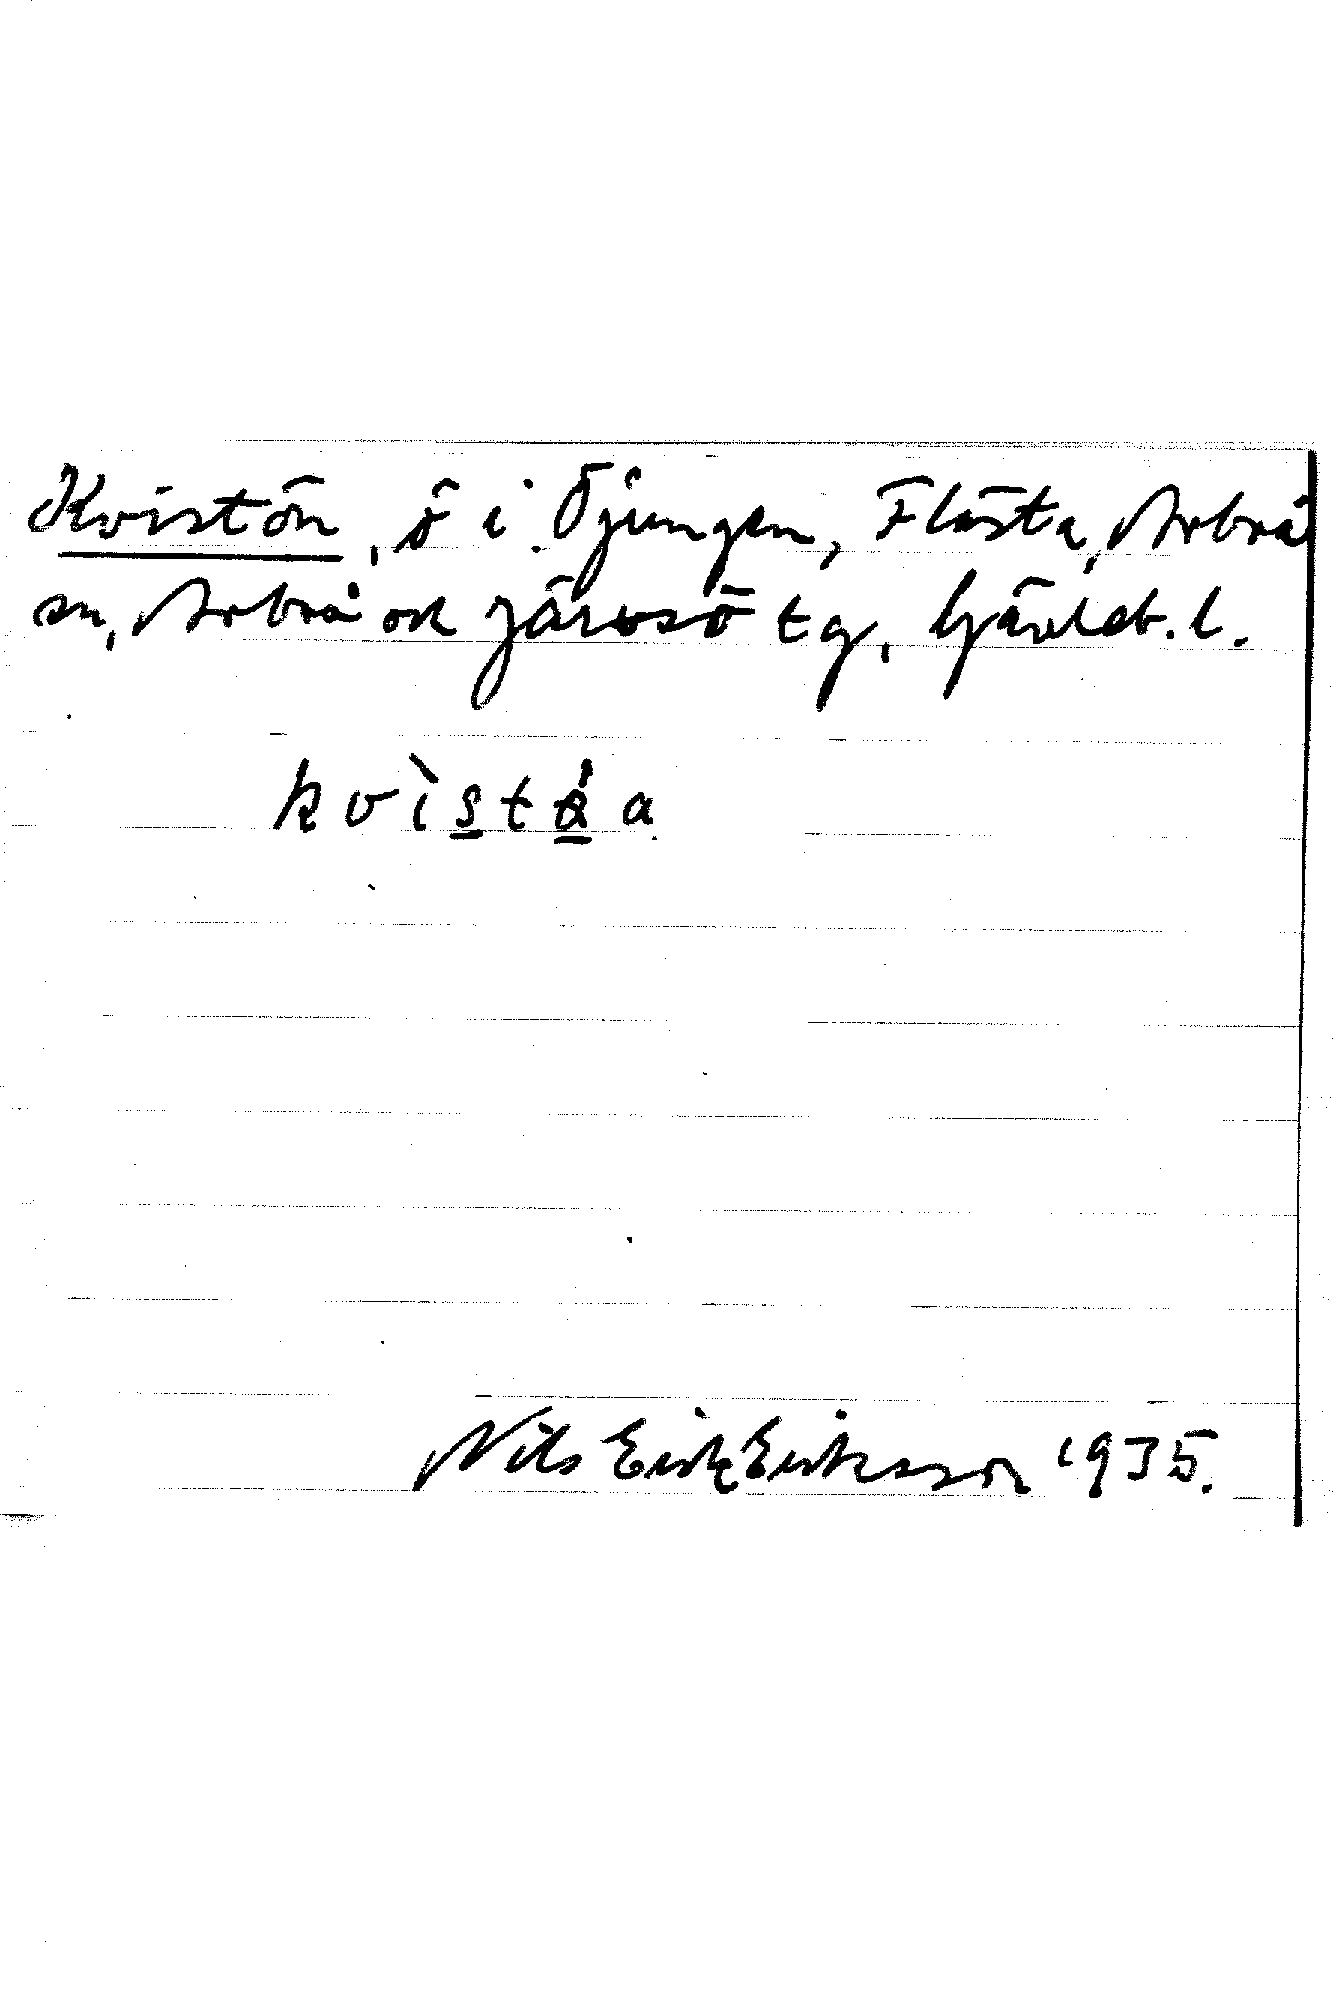 Kvistön, ö i Öjungen, Flästa, Arbrå
sn, Arbrå och Järvsö tg, Gävleb. l.
kvìsta
Nils Erik Eriksson 1935.